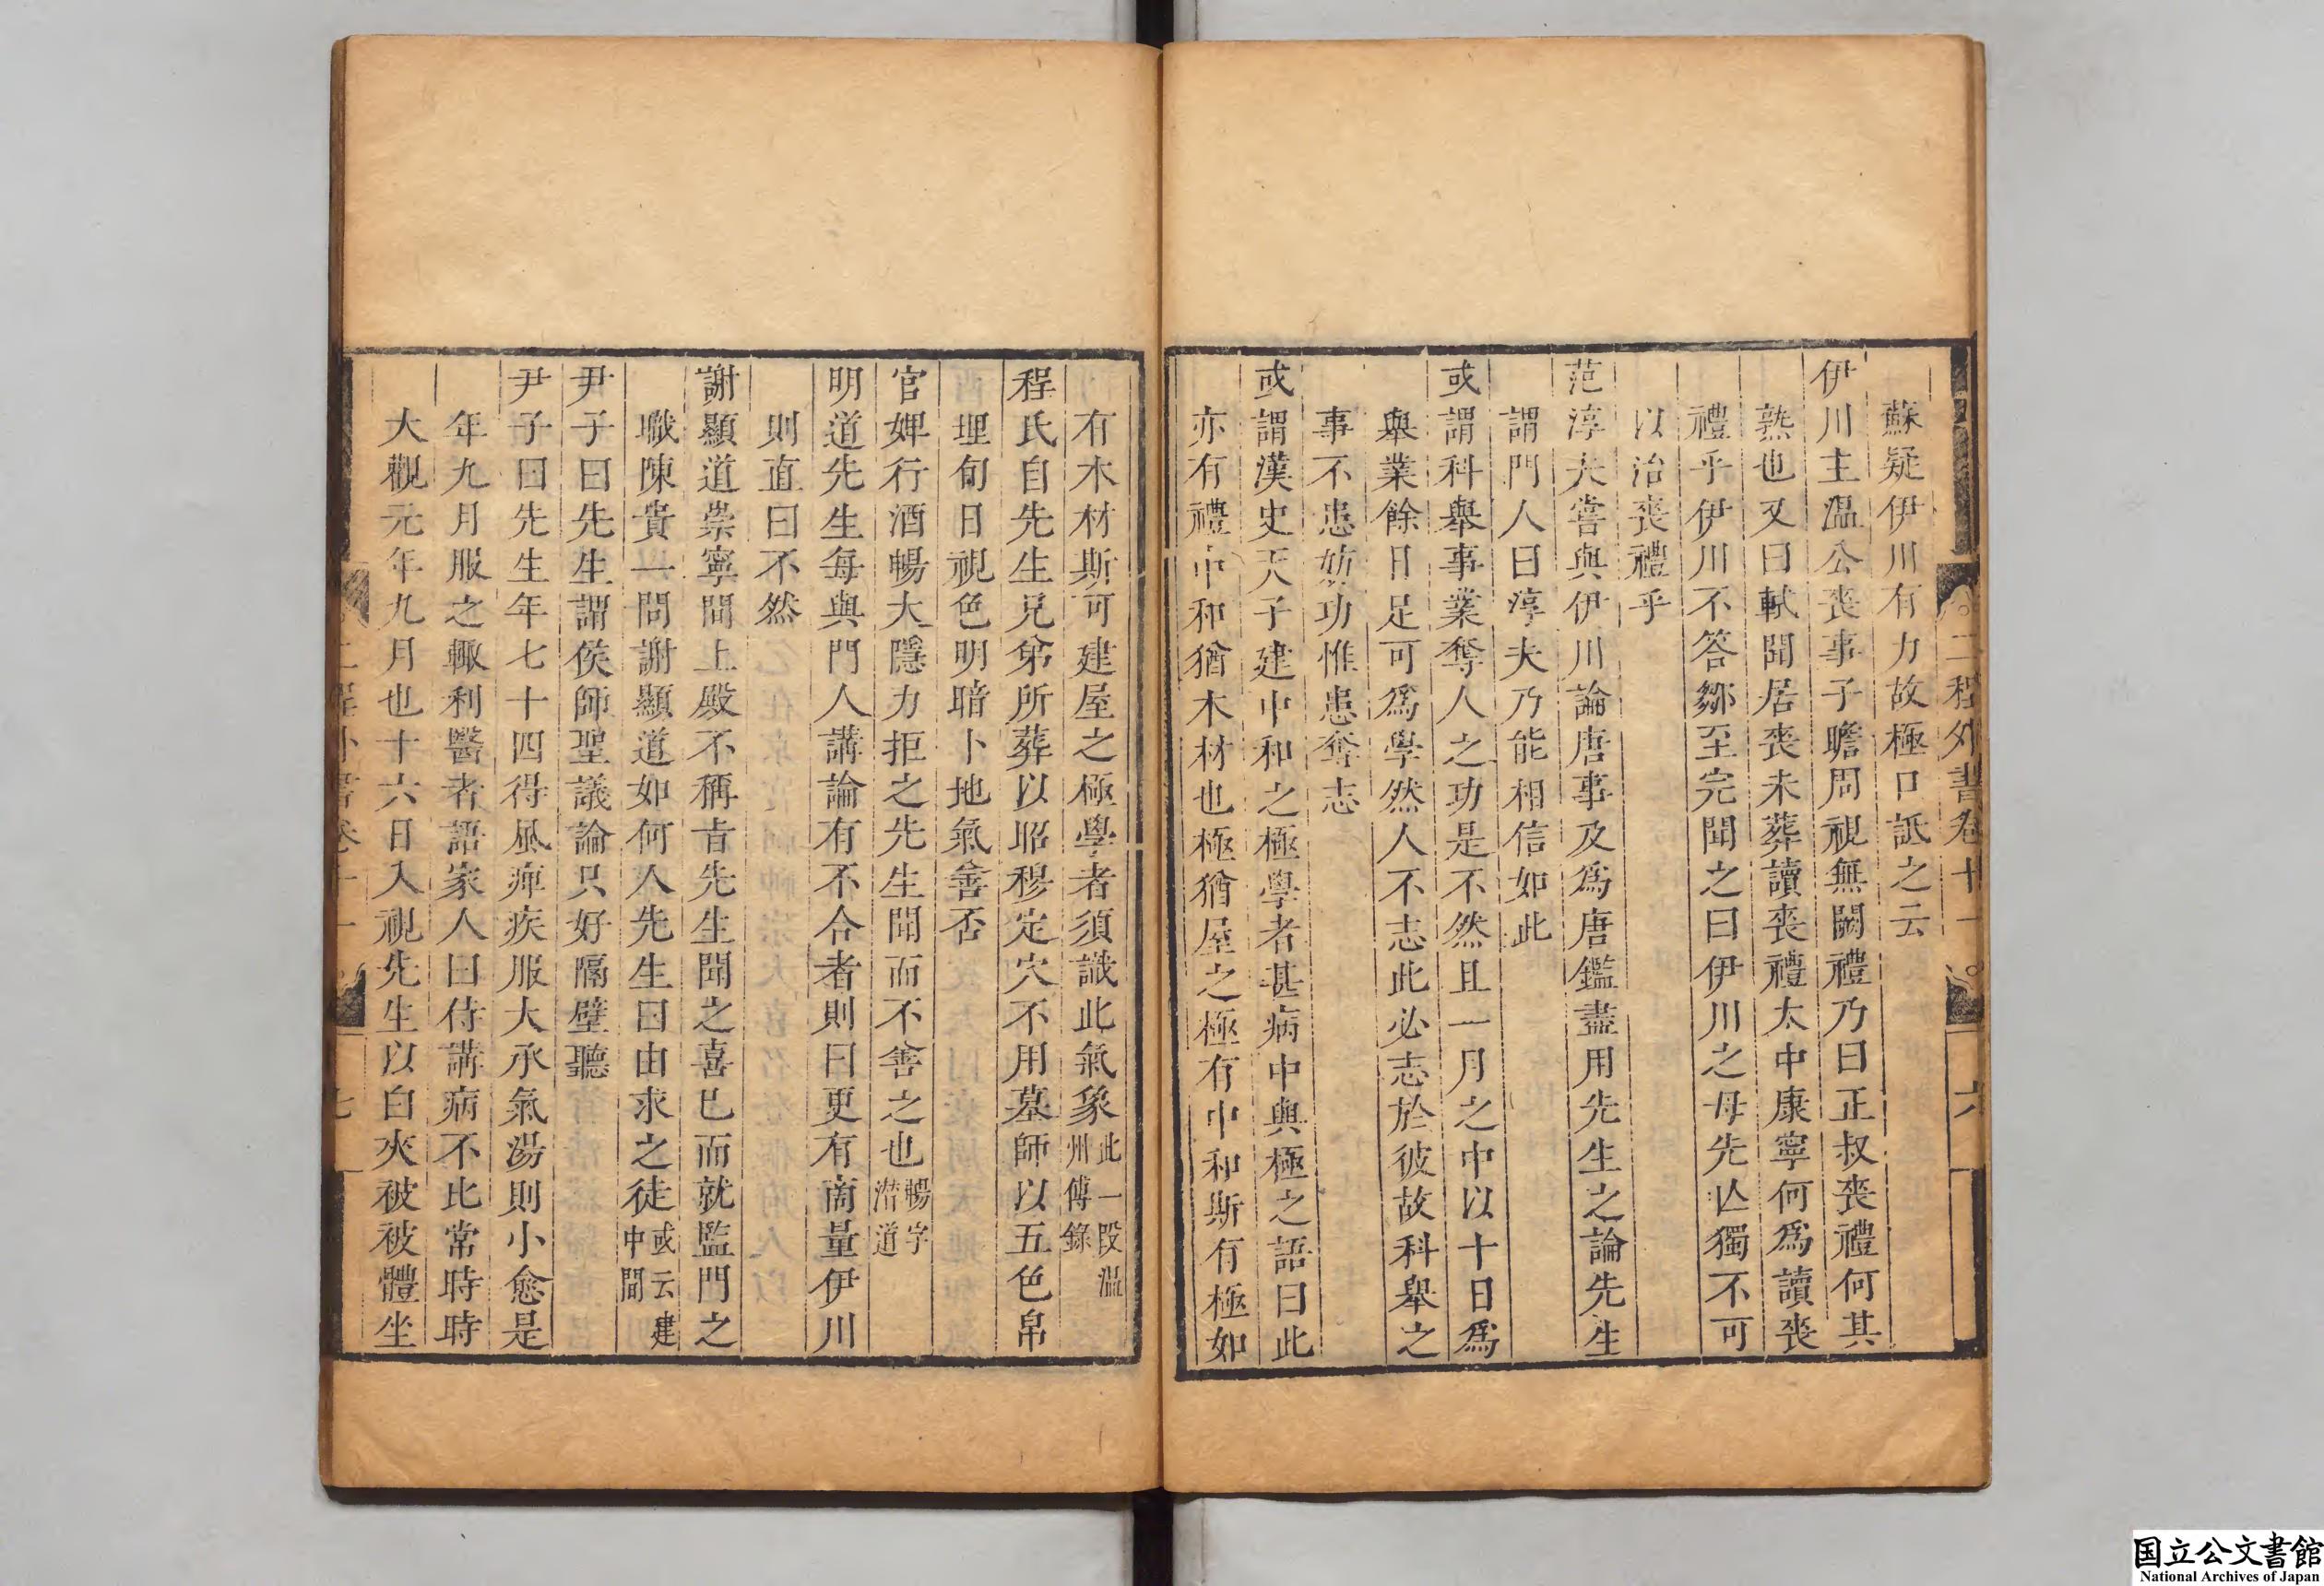 二程外書卷十一
六
蘇疑伊川有力故極口詆之云
伊川主温公喪事子瞻周視無闕禮乃曰正叔喪禮何其
熟也又曰軾聞居喪未葬讀喪禮太中康寧何爲讀喪
禮乎伊川不答鄒至完聞之曰伊川之母先亾獨不可
以治喪禮乎
范淳夫嘗與伊川論唐事及爲唐鑑盡用先生之論先生
謂門人曰淳夫乃能相信如此
或謂科舉事業奪人之功是不然且一月之中以十日爲
舉業餘日足可爲學然人不志此必志於彼故科舉之
事不患妨功惟患奪志
或謂漢史天子建中和之極學者甚病中與極之語曰此
亦有禮中和猶木材也極猶屋之極有中和斯有極如
有木材斯可建屋之極學者須識此氣象此一段温州傅錄
程氏自先生兄弟所葬以昭穆定穴不用墓師以五色帛
埋旬日視色明暗卜地氣善否
官婢行酒暢大隱力拒之先生聞而不善之也暢字潛道
明道先生每與門人講論有不合者則曰更有商量伊川
則直曰不然
謝顯道崇寧間上殿不稱旨先生聞之喜已而就監門之
職陳貴一問謝顯道如何人先生曰由求之徒或云建中間
尹子曰先生謂侯師聖議論只好隔壁聽
尹子曰先生年七十四得風痺疾服大承氣湯則小愈是
年九月服之輙利醫者語家人曰侍講病不比常時時
大觀元年九月也十六日入視先生以白夾被被體坐
二程外書卷十一
七
国立公文書館
National Archives of Japan